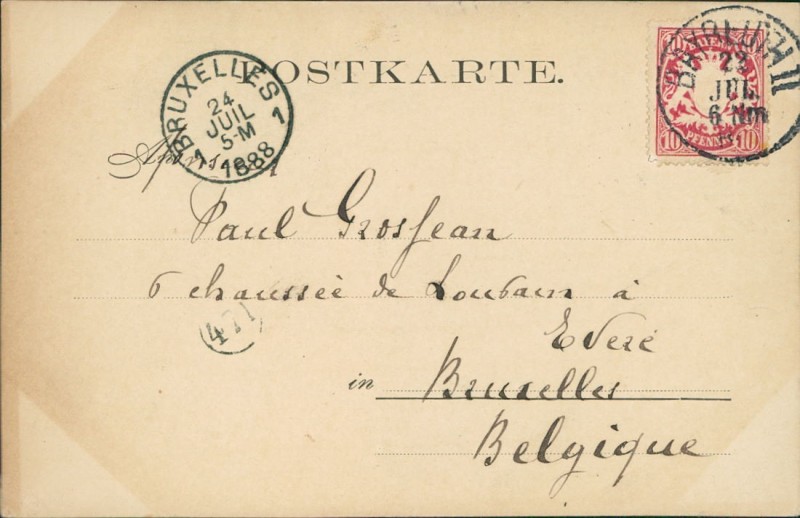 POSTKARTE.
BRUXELLES
24
JUIL
5-M
1888
1 1
BAYREUTH II
23
JUL
6 Nm
BAYERN
10 10
PFENNIG
An
Paul Grosjean
6 chaussée de Louvain à
Evere
in Bruxelles
Belgique
471